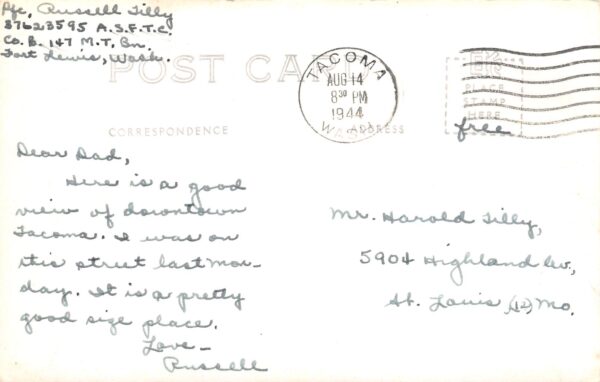 Pfc. Russell Tilly
37623595 A.S.F.T.C.
Co. B. 147 M.T. Bn.
Fort Lewis, Wash.
POST CARD
TACOMA
AUG 14
8 30 PM
1944
WASH.
EK
PLACE
STAMP
HERE
free
CORRESPONDENCE
ADDRESS
Dear Dad,
Here is a good
view of downtown
Tacoma. I was on
this street last Mon-
day. It is a pretty
good size place.
Love -
Russell
Mr. Harold Tilly,
5904 Highland Av.,
St. Louis, (12) Mo.